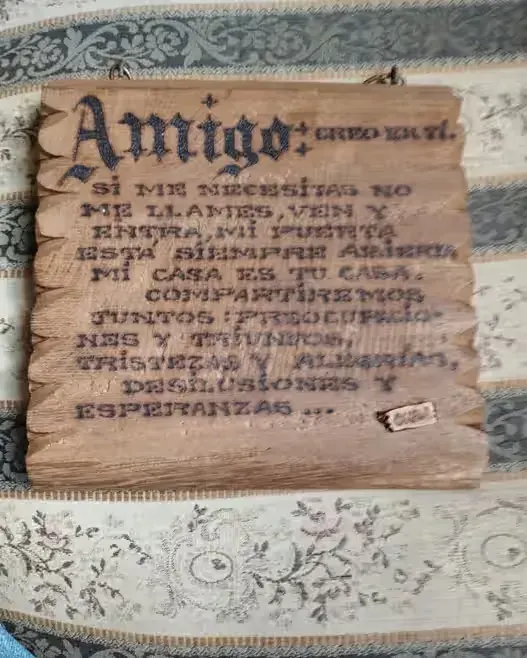 Amigo: CREO EN TÍ.
SÍ ME NECESÍTAS NO
ME LLAMES, VEN Y
ENTRA, MÍ PUERTA
ESTÁ SÍEMPRE ABIERTA
MÍ CASA ES TU CASA.
COMPARTÍREMOS
JUNTOS: PREOCUPACIO-
NES Y TRÍUNFOS,
TRÍSTEZAS Y ALEGRÍAS,
DESILUSÍONES Y
ESPERANZAS ...